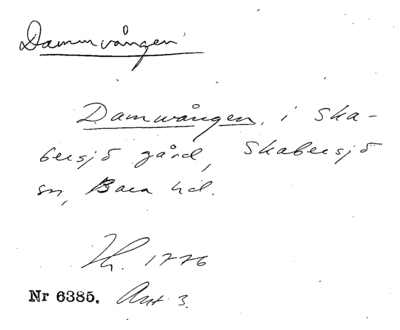 Dammvången
Damwången, i Ska-
bersjö gård, Skabersjö
sn, Bara hd.
1776
Nr 6385. Akt 3.